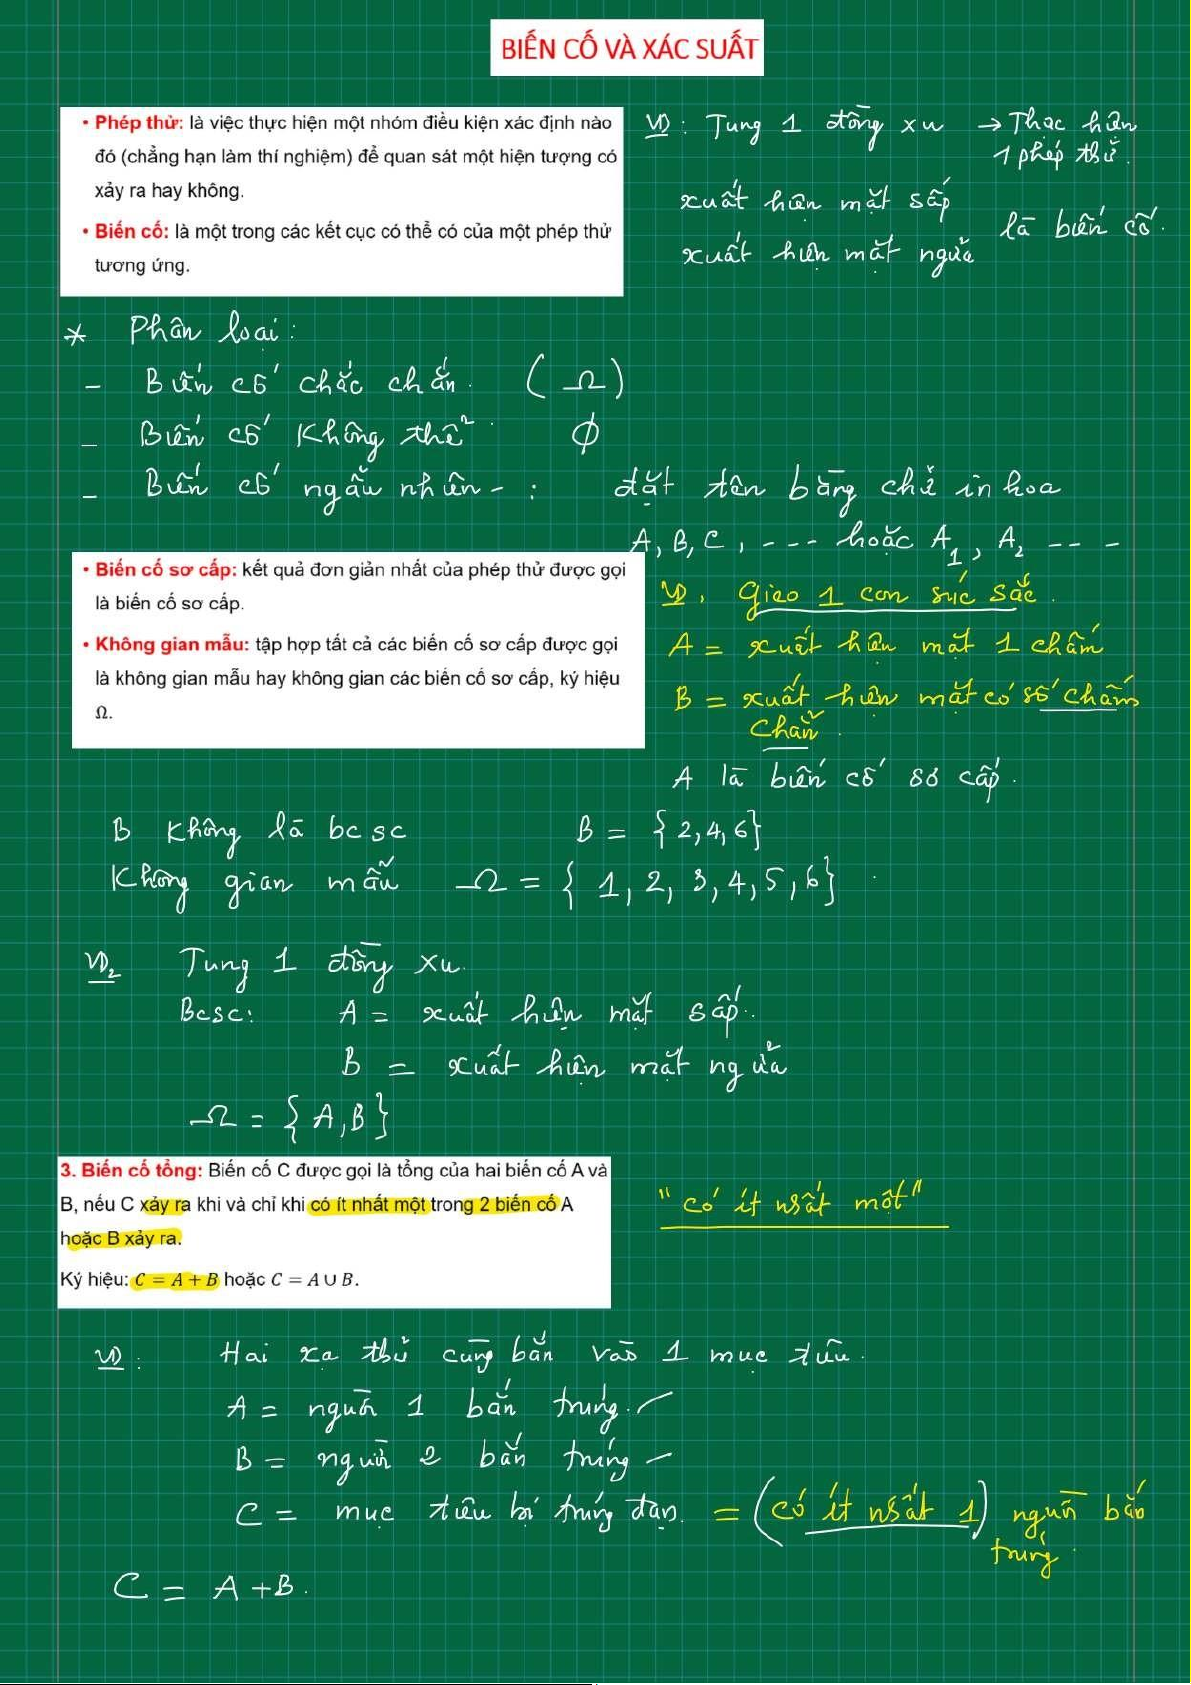 BIẾN CỐ VÀ XÁC SUẤT
• Phép thử: là việc thực hiện một nhóm điều kiện xác định nào
đó (chẳng hạn làm thí nghiệm) để quan sát một hiện tượng có
xảy ra hay không.
• Biến cố: là một trong các kết cục có thể có của một phép thử
tương ứng.
VD: Tung 1 đồng xu → Thực hiện
1 phép thử.
xuất hiện mặt sấp
xuất hiện mặt ngửa
là biến cố.
* Phân loại:
- Biến cố chắc chắn. (Ω)
- Biến cố không thể. ∅
- Biến cố ngẫu nhiên - : đặt tên bằng chữ in hoa
A, B, C, --- hoặc A₁, A₂ ---
• Biến cố sơ cấp: kết quả đơn giản nhất của phép thử được gọi
là biến cố sơ cấp.
• Không gian mẫu: tập hợp tất cả các biến cố sơ cấp được gọi
là không gian mẫu hay không gian các biến cố sơ cấp, ký hiệu
Ω.
VD. Gieo 1 con súc sắc.
A = xuất hiện mặt 1 chấm
B = xuất hiện mặt có số chấm
chẵn.
A là biến cố sơ cấp.
B không là bcsc B = {2,4,6}
Không gian mẫu Ω = {1, 2, 3, 4, 5, 6}.
VD₂ Tung 1 đồng xu.
Bcsc: A = xuất hiện mặt sấp.
B = xuất hiện mặt ngửa
Ω = {A, B}
3. Biến cố tổng: Biến cố C được gọi là tổng của hai biến cố A và
B, nếu C xảy ra khi và chỉ khi có ít nhất một trong 2 biến cố A
hoặc B xảy ra.
Ký hiệu: C = A + B hoặc C = A ∪ B.
"có ít nhất một"
VD: Hai xạ thủ cùng bắn vào 1 mục tiêu.
A = người 1 bắn trúng.
B = người 2 bắn trúng
C = mục tiêu bị trúng đạn. = (có ít nhất 1) người bắn
trúng.
C = A + B.